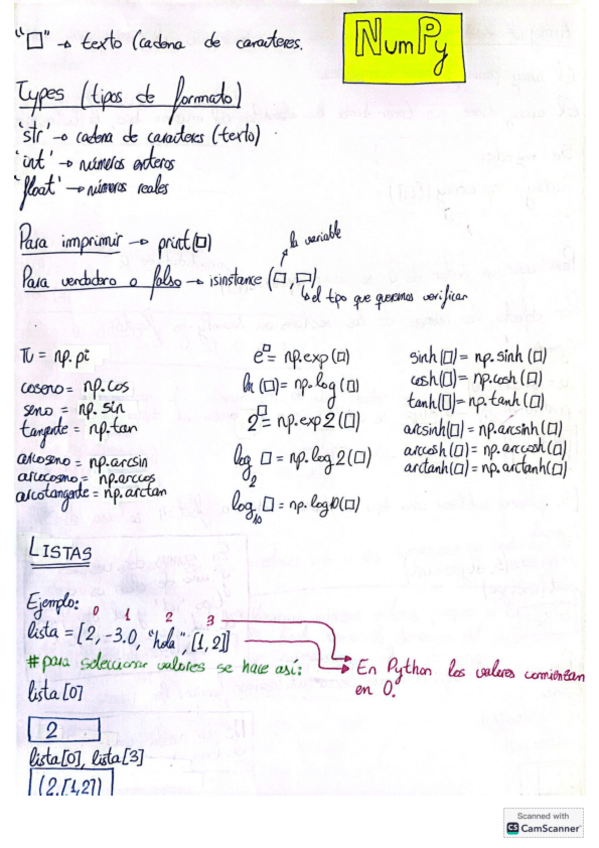 NumPy
"□" → texto (cadena de caracteres.
Types (tipos de formato)
'str' → cadena de caracteres (texto)
'int' → números enteros
'float' → números reales
Para imprimir → print(□)
la variable
Para verdadero o falso → isinstance (□, □)
el tipo que queremos verificar
π = np.pi
coseno = np.cos
seno = np.sin
tangente = np.tan
arcoseno = np.arcsin
arcocoseno = np.arccos
arcotangente = np.arctan
e^□ = np.exp(□)
ln (□) = np.log (□)
2^□ = np.exp2(□)
log₂ □ = np.log2(□)
log₁₀ □ = np.log10(□)
sinh(□) = np.sinh(□)
cosh(□) = np.cosh(□)
tanh(□) = np.tanh(□)
arcsinh(□) = np.arcsinh(□)
arccosh(□) = np.arccosh(□)
arctanh(□) = np.arctanh(□)
LISTAS
Ejemplo:
0 1 2 3
lista = [2, -3.0, "hola", [1, 2]]
# para seleccionar valores se hace así:
En Python los valores comienzan
en 0.
lista [0]
2
lista[0], lista[3]
(2,[1,2])
Scanned with
CS CamScanner